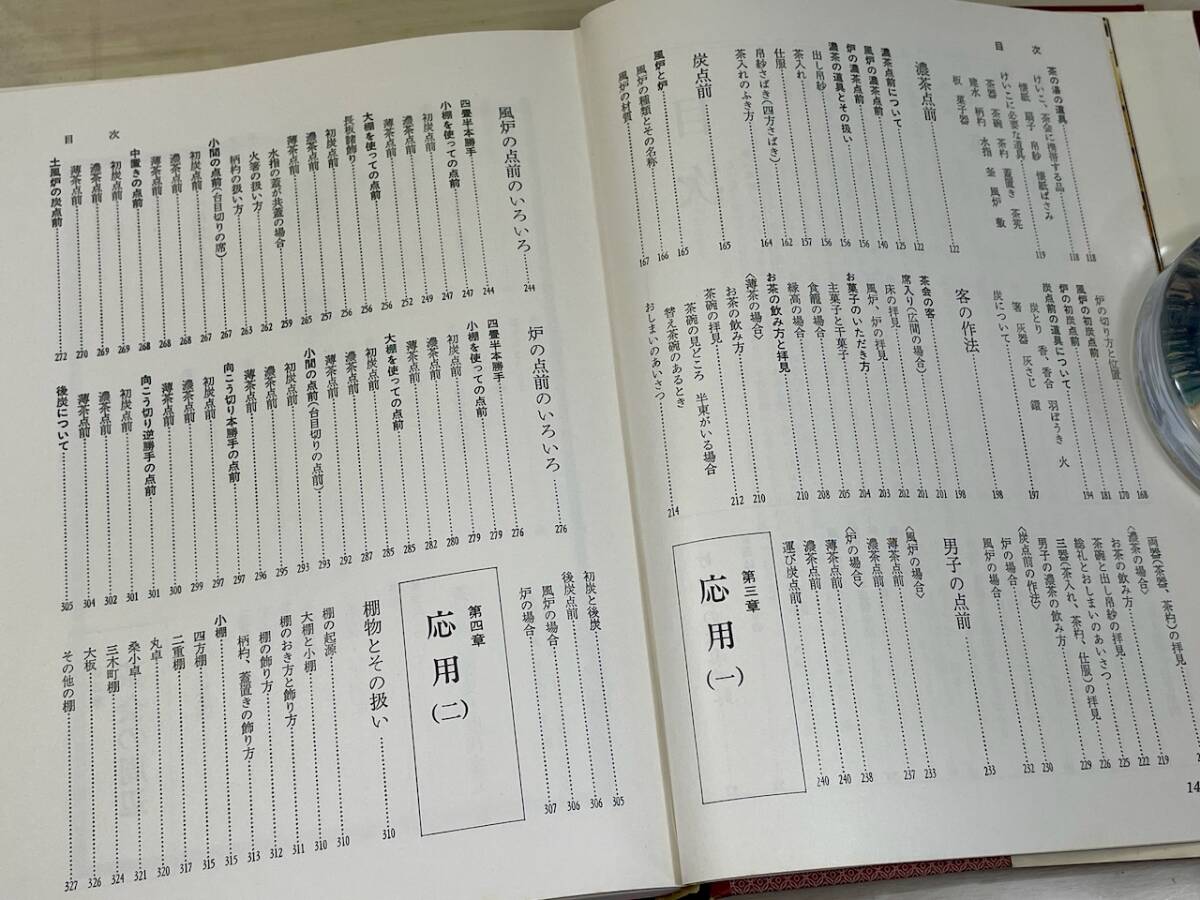 目次
茶の湯の道具……118
けいこ、茶会に携帯する品……118
懐紙 扇子 帛紗 懐紙ばさみ
けいこに必要な道具……119
茶器 茶碗 茶杓 蓋置き 茶筅
建水 柄杓 水指 釜 風炉 敷
板 菓子器
濃茶点前……122
濃茶点前について……122
風炉の濃茶点前……125
炉の濃茶点前……140
濃茶の道具とその扱い……156
出し帛紗……156
茶入れ……156
仕服……157
帛紗さばき(四方さばき)……162
茶入れのふき方……164
炭点前……165
風炉と炉……165
風炉の種類とその名称……166
風炉の材質……167
炉の切り方と位置……168
風炉の初炭点前……170
炉の初炭点前……181
炭点前の道具について……194
炭とり 香、香合 羽ぼうき 火
箸 灰器 灰さじ 鐶……197
炭について……198
客の作法……198
茶会の客……201
席入り(広間の場合)……201
床の拝見……202
風炉、炉の拝見……203
お菓子のいただき方……204
主菓子と干菓子……205
食籠の場合……208
縁高の場合……210
お茶の飲み方と拝見
〈薄茶の場合〉
お茶の飲み方……210
茶碗の拝見……212
茶碗の見どころ 半東がいる場合
替え茶碗のあるとき
おしまいのあいさつ……214
両器(茶器、茶杓)の拝見
〈濃茶の場合〉
お茶の飲み方……219
茶碗と出し帛紗の拝見……222
総礼とおしまいのあいさつ……225
三器(茶入れ、茶杓、仕服)の拝見……226
男子の濃茶の飲み方……229
〈炭点前の作法〉
炉の場合……230
風炉の場合……232
男子の点前……233
〈風炉の場合〉
薄茶点前……233
濃茶点前……237
〈炉の場合〉
薄茶点前……238
濃茶点前……240
運び炭点前……240
第三章
応用(一)
14
風炉の点前のいろいろ……244
四畳半本勝手……244
小棚を使っての点前……247
初炭点前……247
濃茶点前……249
薄茶点前……252
大棚を使っての点前……256
長板諸飾り
初炭点前……256
濃茶点前……257
薄茶点前……265
水指の蓋が共蓋の場合……259
火箸の扱い方……262
柄杓の扱い方……263
小間の点前(台目切りの席)……267
初炭点前……267
濃茶点前……268
薄茶点前……268
中置きの点前……268
初炭点前……269
濃茶点前……269
薄茶点前……270
土風炉の炭点前……272
目次
炉の点前のいろいろ……276
四畳半本勝手……276
小棚を使っての点前……279
初炭点前……279
濃茶点前……280
薄茶点前……282
大棚を使っての点前……285
初炭点前……285
濃茶点前……287
薄茶点前……292
小間の点前(台目切りの点前)……293
初炭点前……293
濃茶点前……295
薄茶点前……296
向こう切り本勝手の点前……297
初炭点前……297
濃茶点前……299
薄茶点前……300
向こう切り逆勝手の点前……301
初炭点前……301
濃茶点前……302
薄茶点前……304
後炭について……305
初炭と後炭……305
後炭点前……306
風炉の場合……306
炉の場合……307
第四章
応用(二)
棚物とその扱い……310
棚の起源……310
大棚と小棚……310
棚のおき方と飾り方……311
棚の飾り方……312
柄杓、蓋置きの飾り方……313
小棚……315
四方棚……315
二重棚……317
丸卓……320
桑小卓……321
三木町棚……324
大板……326
その他の棚……327